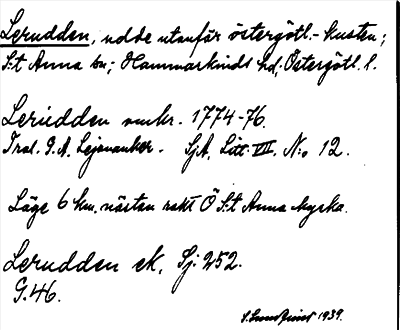 Lerudden, udde utanför östergötl.-kusten;
S:t Anna sn; Hammarkinds hd, Östergötl. l.
Lerudden omkr. 1774-76.
Trol. G. A. Lejonanker. SjA, Litt. VIII. N:o 12.
Läge 6 km. nästan rakt Ö S:t Anna kyrka.
Lerudden ek, Sj: 252.
G. 46.
1939.